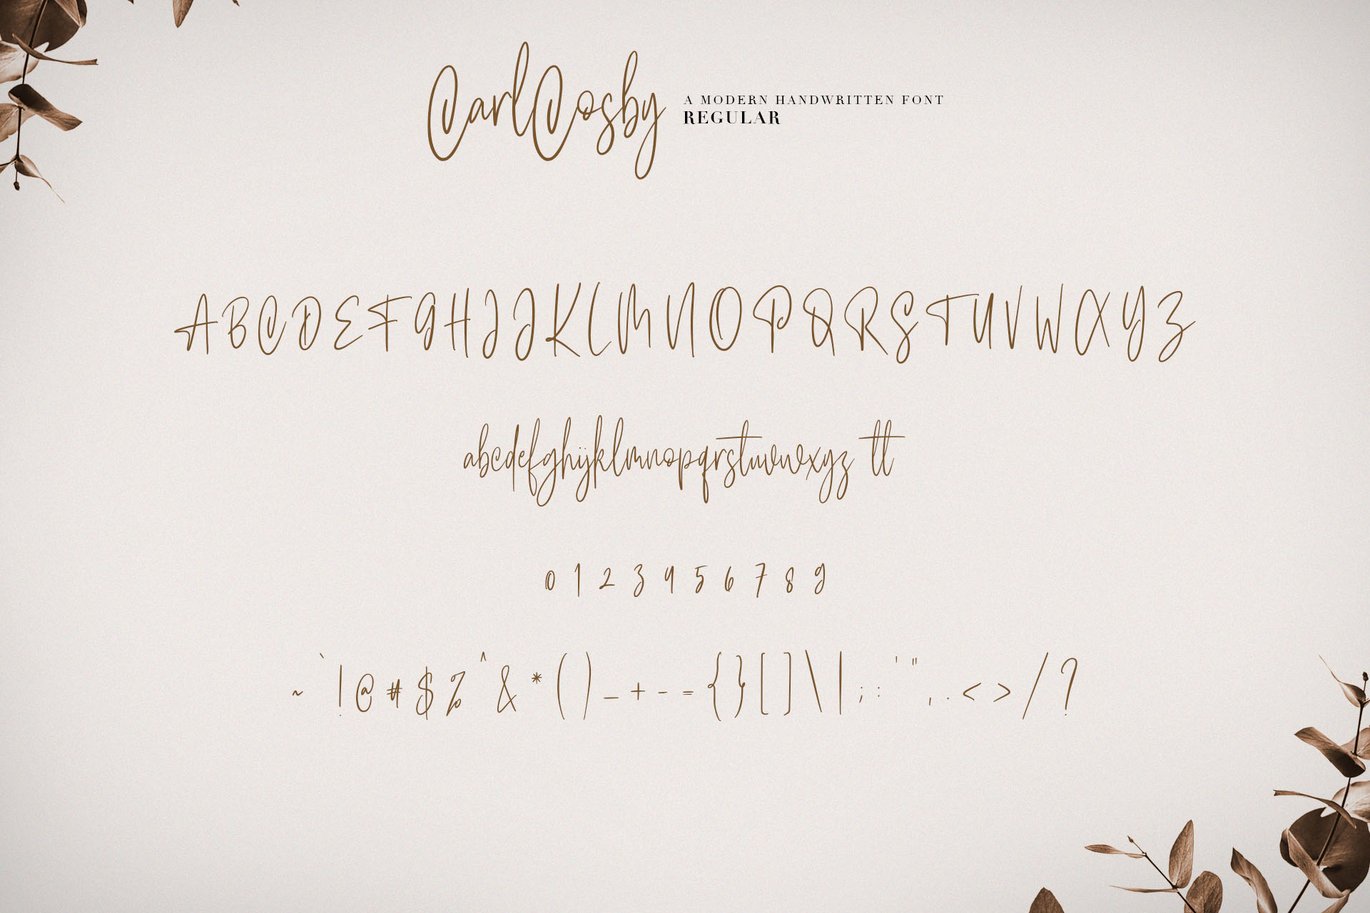 CarlCosby
A MODERN HANDWRITTEN FONT
REGULAR
ABCDEFGHIJKLMNOPQRSTUVWXYZ
abcdefghijklmnopqrstuvwxyz tt
0 1 2 3 4 5 6 7 8 9
~ ` ! @ # $ % ^ & * ( ) _ + - = { } [ ] \ | ; : ' " , . < > / ?